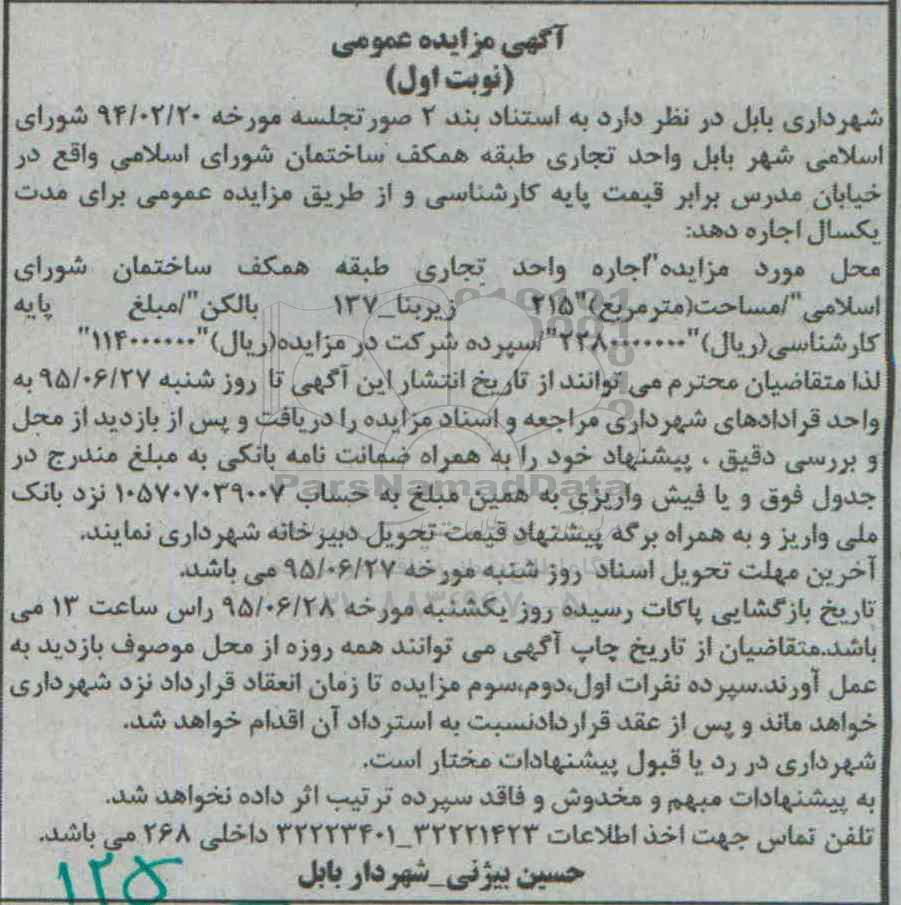 آگهی مزایده عمومی
(نوبت اول)
شهرداری بابل در نظر دارد به استناد بند ۲ صورتجلسه مورخه ۹۴/۰۲/۲۰ شورای
اسلامی شهر بابل واحد تجاری طبقه همکف ساختمان شورای اسلامی واقع در
خیابان مدرس برابر قیمت پایه کارشناسی و از طریق مزایده عمومی برای مدت
یکسال اجاره دهد:
محل مورد مزایده"اجاره واحد تجاری طبقه همکف ساختمان شورای
اسلامی"/مساحت(مترمربع)"۲۱۵ زیربنا_۱۳۷ بالکن"/مبلغ پایه
کارشناسی(ریال)"۲۲۸۰۰۰۰۰۰۰"/سپرده شرکت در مزایده(ریال)"۱۱۴۰۰۰۰۰۰"
لذا متقاضیان محترم می توانند از تاریخ انتشار این آگهی تا روز شنبه ۹۵/۰۶/۲۷ به
واحد قرادادهای شهرداری مراجعه و اسناد مزایده را دریافت و پس از بازدید از محل
و بررسی دقیق ، پیشنهاد خود را به همراه ضمانت نامه بانکی به مبلغ مندرج در
جدول فوق و یا فیش واریزی به همین مبلغ به حساب ۱۰۵۷۰۷۰۳۹۰۰۷ نزد بانک
ملی واریز و به همراه برگه پیشتهاد قیمت تحویل دبیرخانه شهرداری نمایند.
آخرین مهلت تحویل اسناد روز شنبه مورخه ۹۵/۰۶/۲۷ می باشد.
تاریخ بازگشایی پاکات رسیده روز یکشنبه مورخه ۹۵/۰۶/۲۸ راس ساعت ۱۳ می
باشد.متقاضیان از تاریخ چاپ آگهی می توانند همه روزه از محل موصوف بازدید به
عمل آورند.سپرده نفرات اول،دوم،سوم مزایده تا زمان انعقاد قرارداد نزد شهرداری
خواهد ماند و پس از عقد قراردادنسبت به استرداد آن اقدام خواهد شد.
شهرداری در رد یا قبول پیشنهادات مختار است.
به پیشنهادات مبهم و مخدوش و فاقد سپرده ترتیب اثر داده نخواهد شد.
تلفن تماس جهت اخذ اطلاعات ۳۲۲۲۱۴۲۳_۳۲۲۲۳۴۰۱ داخلی ۲۶۸ می باشد.
حسین بیژنی_شهردار بابل
۱۲۵
ParsNamadData